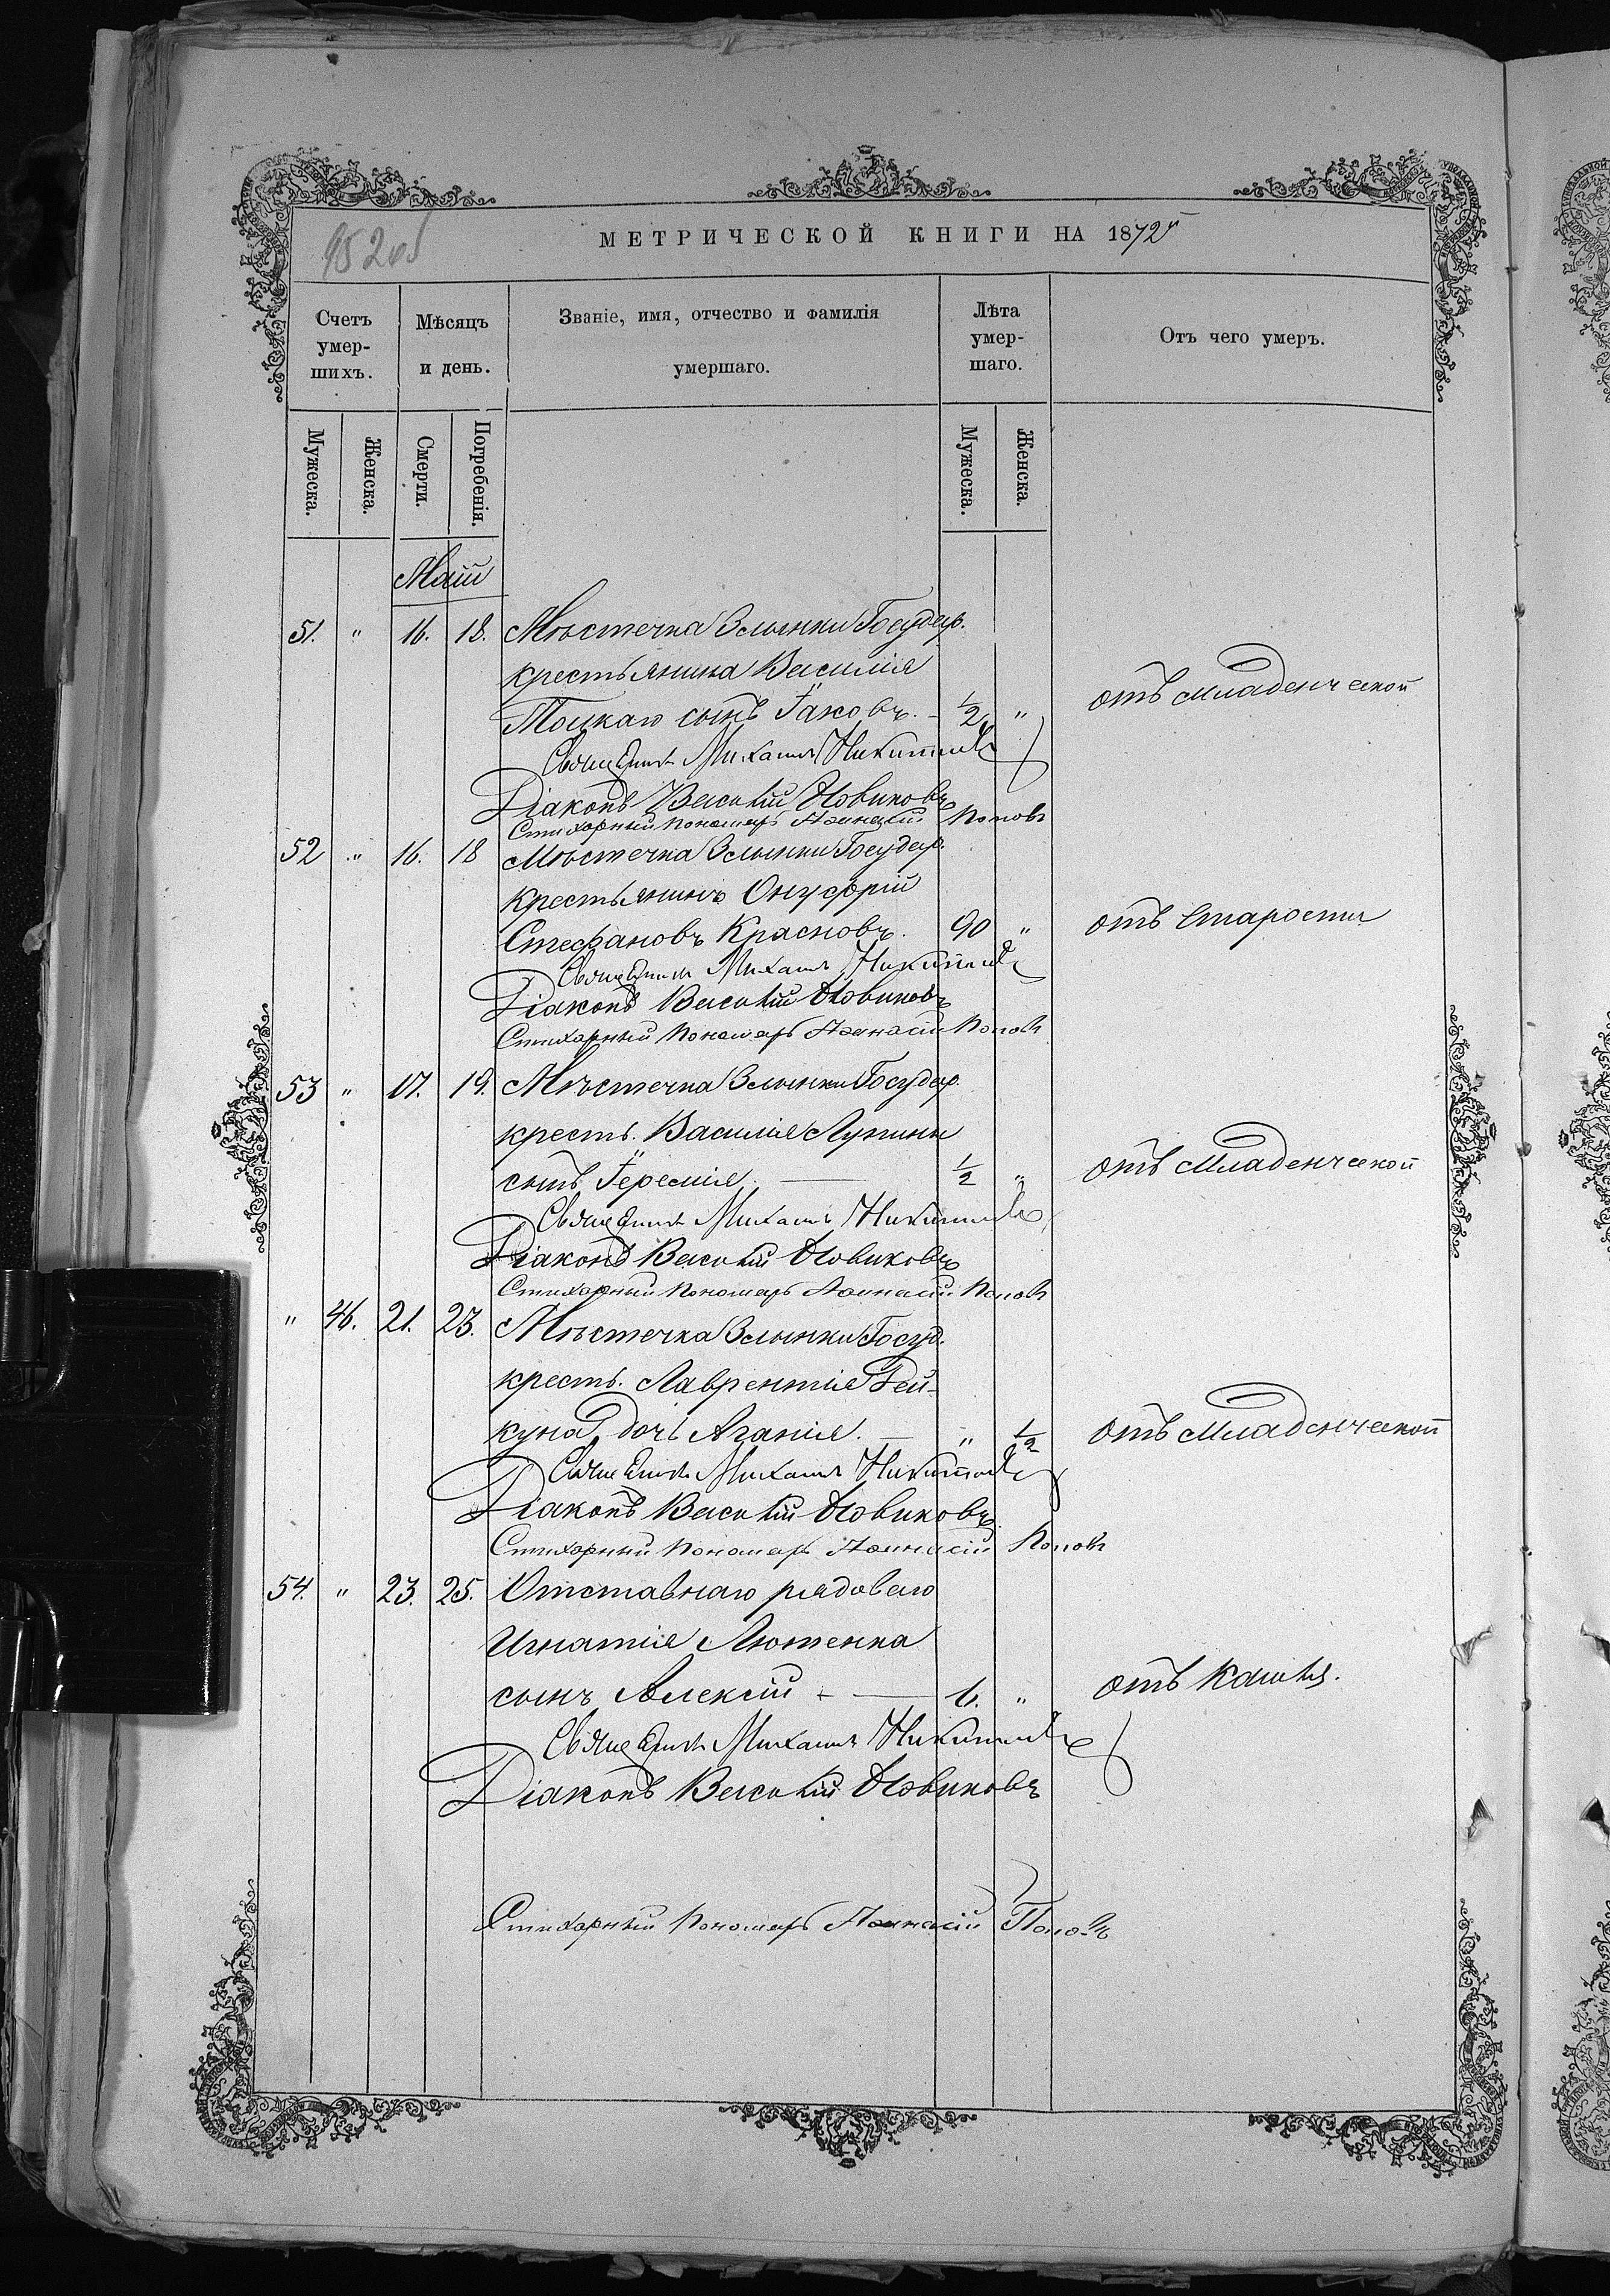 952об
МЕТРИЧЕСКОЙ КНИГИ НА 1872
Счетъ умершихъ.
Мѣсяцъ и день.
Званіе, имя, отчество и фамилія умершаго.
Лѣта умершаго.
Отъ чего умеръ.
Мужеска.
Женска.
Смерти.
Погребенія.
Мужеска.
Женска.
Маій
51. " 16. 18. Мѣстечка Злынки Государ.
крестьянина Василія
Тоцкаго сынъ Іаковъ. - 1/2 " отъ младенческой
Священникъ Михаилъ Никитинъ
Діаконъ Василій Новиковъ
Стихарный Пономарь Аѳанасій Поповъ
52 " 16. 18 Мѣстечка Злынки Государ.
крестьянинъ Онуфрій
Стефановъ Красновъ. 90 " отъ Старости
Священникъ Михаилъ Никитинъ
Діаконъ Василій Новиковъ
Стихарный Пономарь Аѳанасій Поповъ
53 " 17. 19. Мѣстечка Злынки Государ.
кресть. Василія Лупини
сынъ Іеремія. — 1/2 " отъ Младенческой
Священникъ Михаилъ Никитинъ
Діаконъ Василій Новиковъ
Стихарный Пономарь Аѳанасій Поповъ
" 46. 21. 23. Мѣстечка Злынки Госуд.
кресть. Лаврентія Гей-
куна дочь Агапія. — " 1/2 отъ Младенческой
Священникъ Михаилъ Никитинъ
Діаконъ Василій Новиковъ
Стихарный Пономарь Аѳанасій Поповъ
54. " 23. 25. Отставнаго рядоваго
Игнатія Лютенка
сынъ Алексій - — 6. " отъ Кашля.
Священникъ Михаилъ Никитинъ
Діаконъ Василій Новиковъ
Стихарный Пономарь Аѳанасій Поповъ